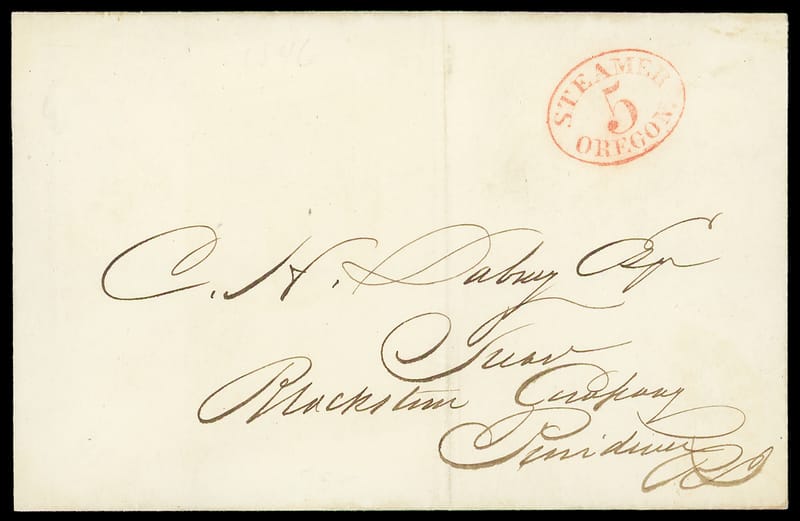 STEAMER
5
OREGON.
C. H. Dabney Esq
Treas
Blackstone Company
Providence
RI